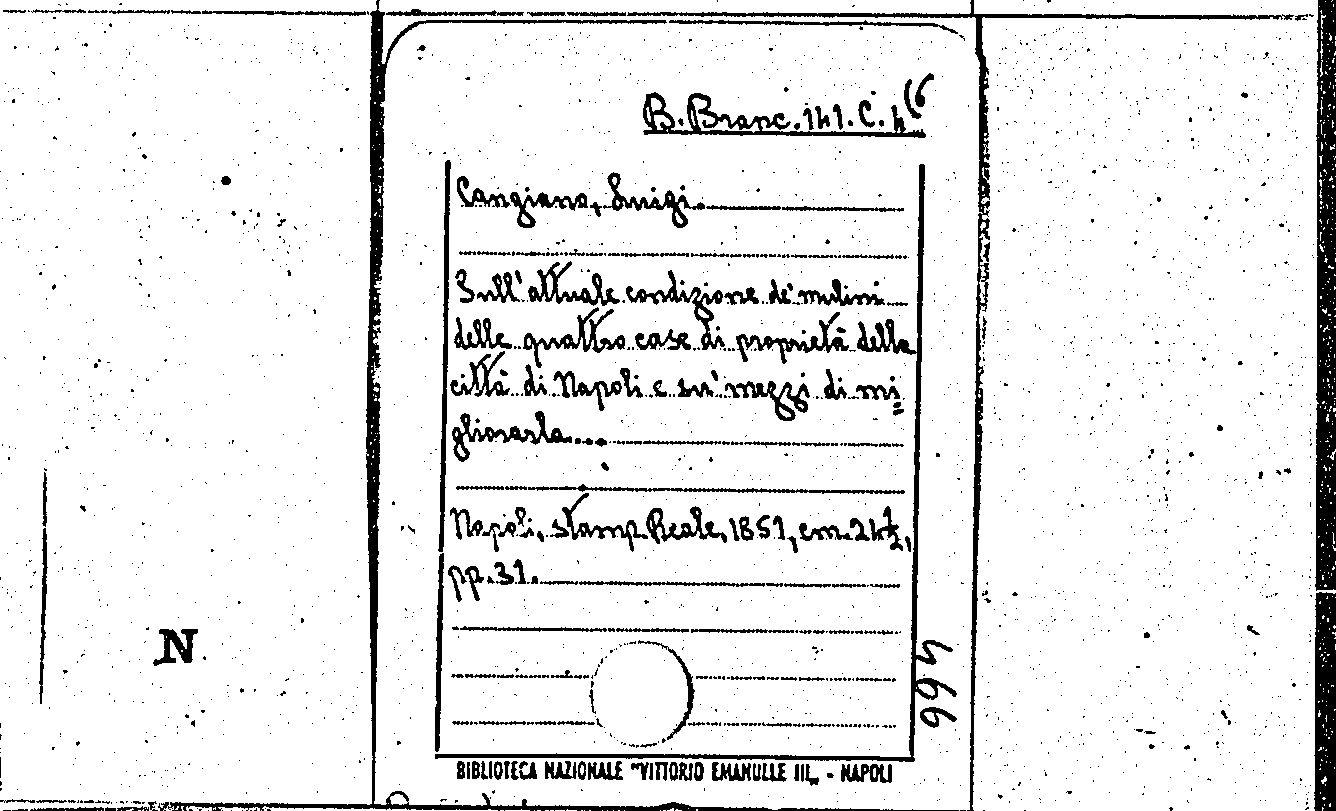 B. Branc. 141. C. 4(6
Cangiano, Luigi.
Sull'attuale condizione de' mulini
delle quattro case di proprietà della
città di Napoli e su' mezzi di mi=
gliorarla...
Napoli, stamp. Reale, 1851, cm. 24½,
pp. 31.
N
466
BIBLIOTECA NAZIONALE "VITTORIO EMANULLE III„ - NAPOLI